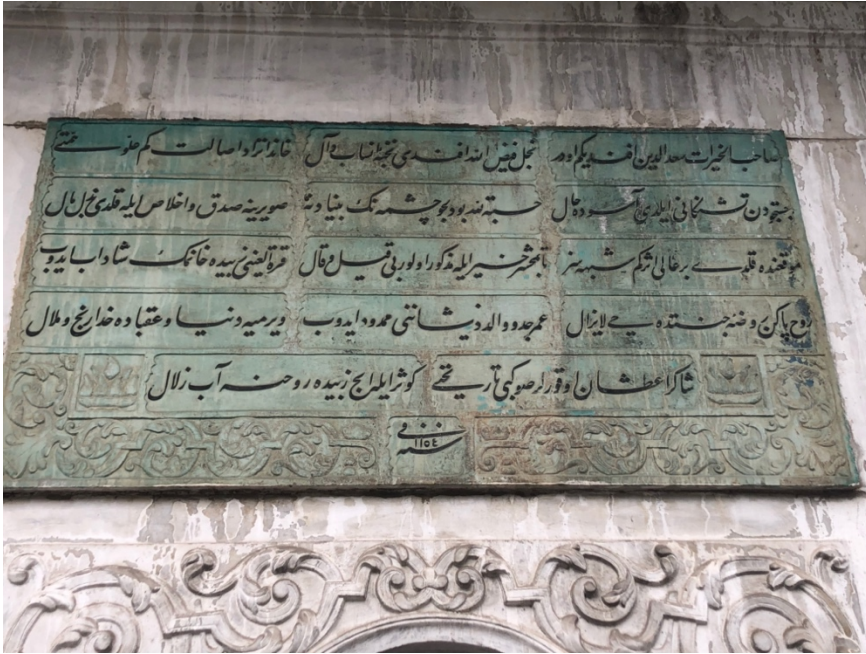 صاحب الخيرات سعد الدين افنديكم اودر نجل فيض الله افندى نخبة انساب و آل خاندانزاد اصالت كم علو همتى
جستجودن تشنكانى ايلدى آسوده حال حسبة لله بو دلجو چشمه نك بنيادينه صو يرينه صدق و اخلاص ايله قلدى بذل مال
موقعنده قلدى بر عالى اثر كم شبهه سز تا بمحشر خير ايله مذكور اولور بى قيل و قال قرة العينى زبيده خانمك شاداب ايدوب
روح پاكن روضه جنتده حى لايزال عمر جد و والد ذيشاننى ممدود ايدوب ويرميه دنيا و عقباده خدا رنج و ملال
شاكرا عطشان اوقورلر صو كبى تاريخنى كوثر ايله ايچ زبيده روحنه آب زلال
فى سنه ١١٥٤